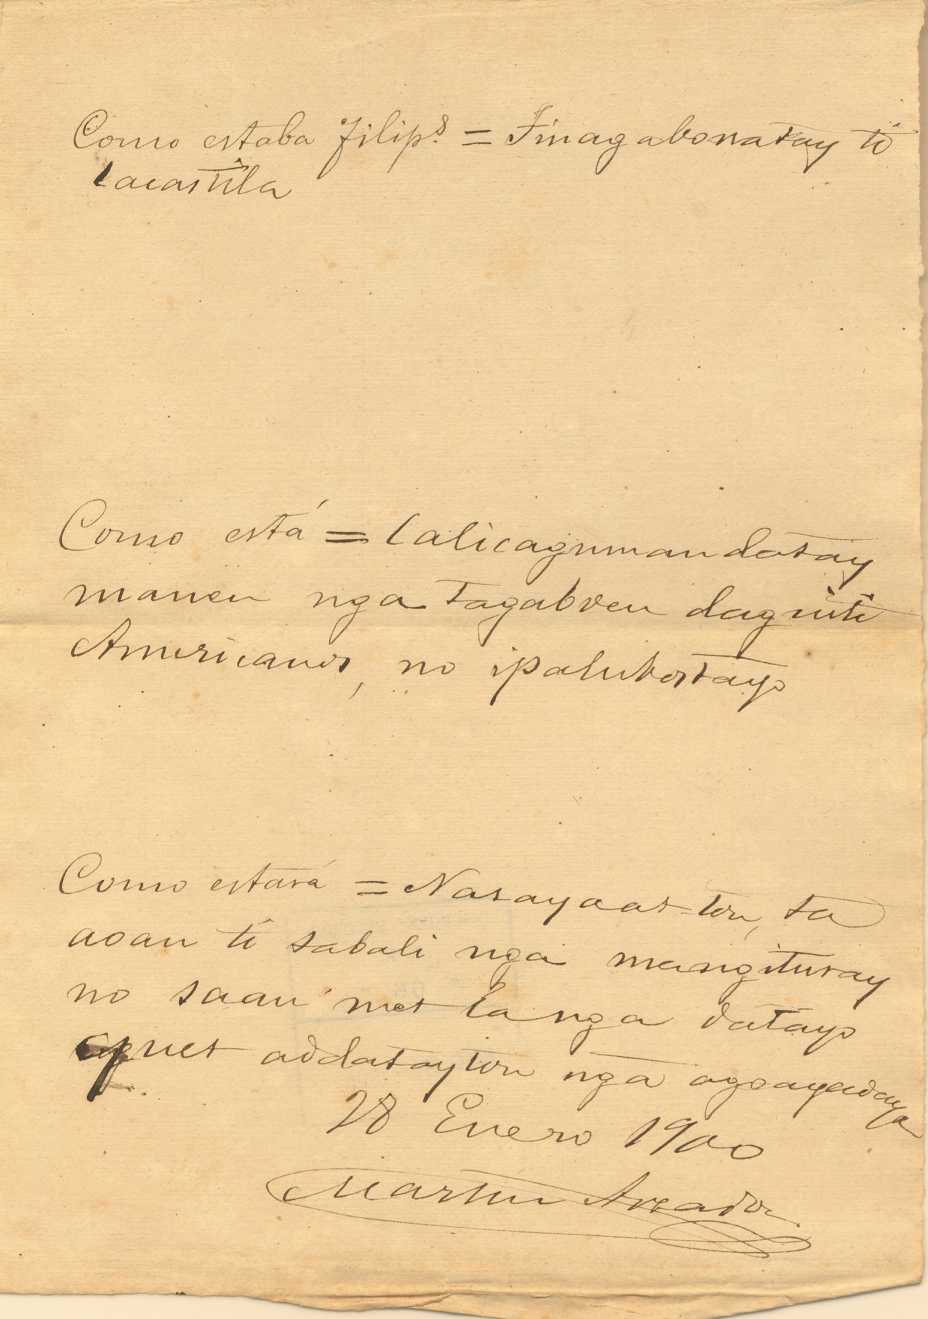 Como estaba Filip.s = Finagabonatay ti
Cacastila
Como está = Calicagumandatay
manen nga tagabuen dagniti
Americanos, no ipalubostayo
Como estará = Narayaat-ton, ta
aoan ti sabali nga mangituray
no saan met la nga datayo
quet addatayton nga agoayaoaya
28 Enero 1900
Martin